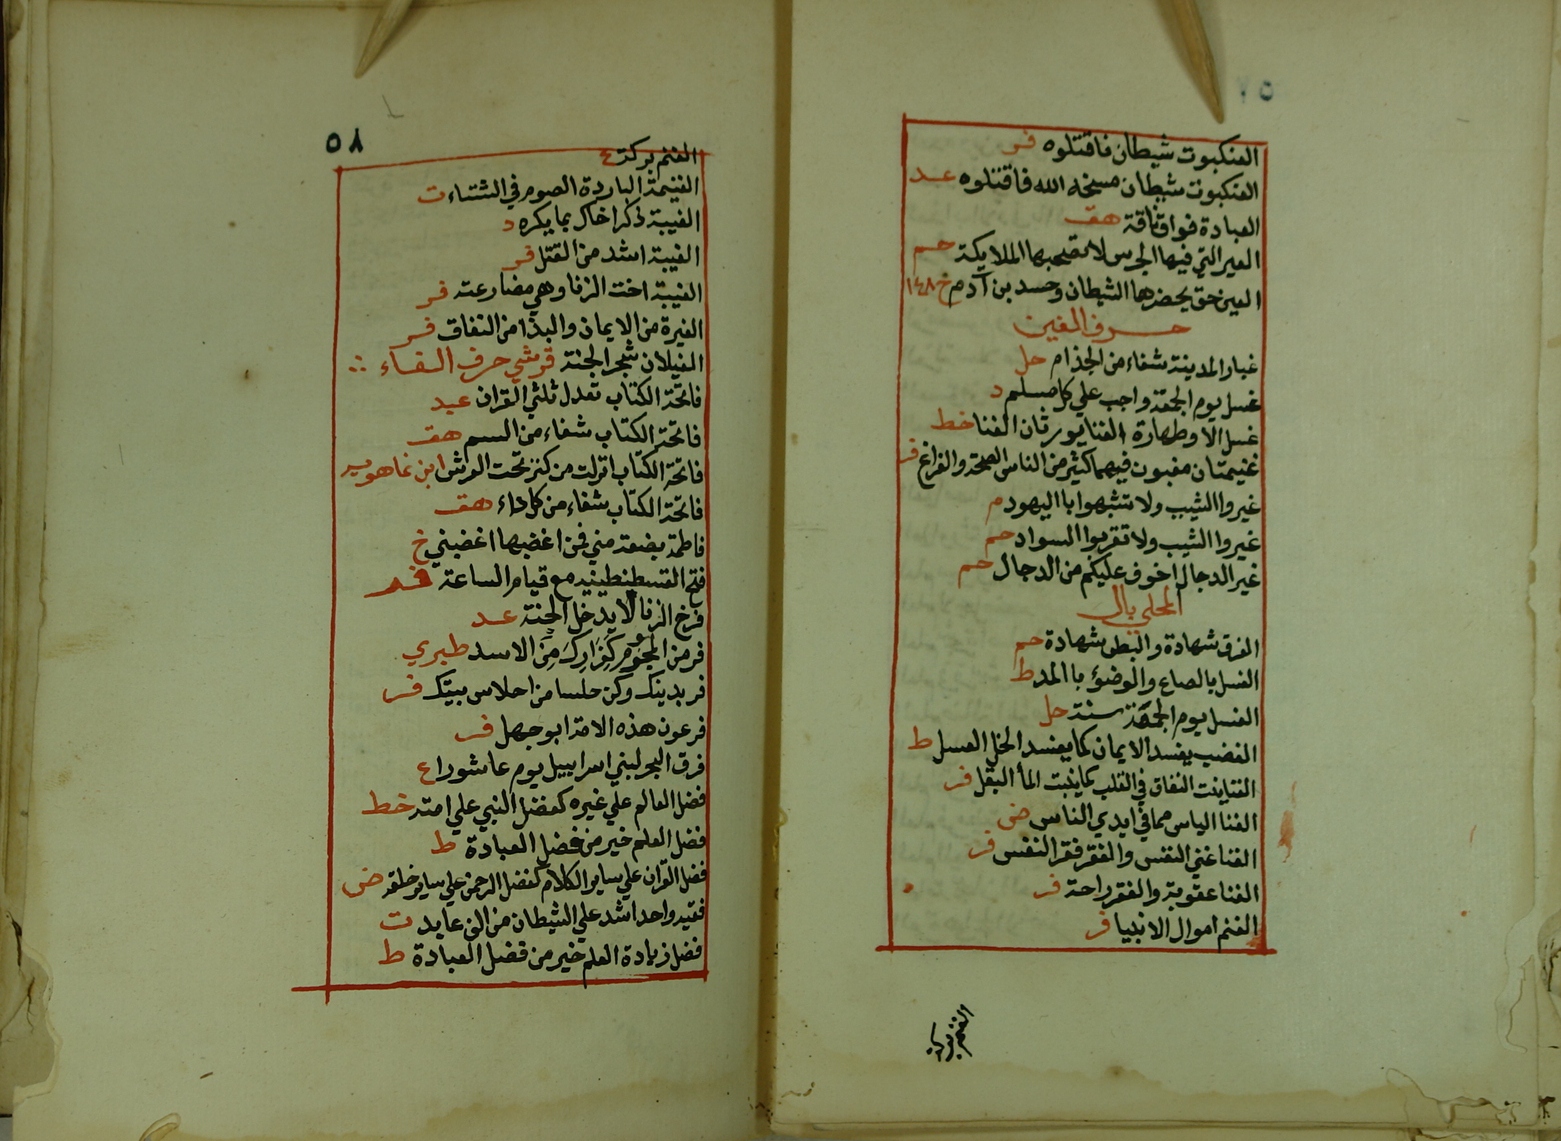 ٥٧
العنكبوت شيطان فاقتلوه فر
العنكبوت شيطان مسخه الله فاقتلوه عد
العبادة فواق ناقة هق
العير التي فيها الجرس لا تصحبها الملايكة حم
العين حق يحضرها الشيطان وحسد بن آدم خ ١٤٨
حرف الغين
غبار المدينة شفاء من الجذام حل
غسل يوم الجمعة واجب علي كل مسلم د
غسل الا وطهارة الفنا يورثان الغنا خط
غنيمتان مغبون فيهما كثير من الناس الصحة والفراغ فر
غيروا الشيب ولا تشبهوا با اليهود م
غيروا الشيب ولا تقربوا السواد حم
غير الدجال اخوف عليكم من الدجال حم
المحلي بال
الغرق شهادة والبطن شهادة حم
الغسل بالصاع والوضوء با المد ط
الغسل يوم الجمعة سنة حل
الغضب يفسد الايمان كما يفسد الخل العسل ط
الغنا ينبت النفاق في القلب كما ينبت المأ البقل فر
الغنا الياس مما في ايدي الناس ض
الغنا غني النفس والفقر فقر النفس فر
الغنا عقوبة والفقر راحة فر
الغنم اموال الانبيا فر
الغنم بركة
٥٨
الغنم بركة ع
الغنيمة الباردة الصوم في الشتاء ت
الغيبة ذكر اخاك بما يكره د
الغيبة اشد من القتل فر
الغيبة اخت الزنا وهي مضارعته فر
الغيرة من الايمان والبذا من النفاق فر
الغيلان شجر الجنة قرشي حرف الفاء
فاتحة الكتاب تعدل ثلثي القران عبد
فاتحة الكتاب شفاء من السم هق
فاتحة الكتاب انزلت من كنز تحت العرش ابن
فاتحة الكتاب شفاء من كل داء هق
فاطمة بضعة مني فمن اغضبها اغضبني خ
فتح القسطنطينيه مع قيام الساعة
فرخ الزنا لا يدخل الجنة عد
فر من المجذوم كفرارك من الاسد طبري
فر بدينك وكن حلسا من احلاس بيتك فر
فرعون هذه الامة ابو جهل فر
فرق البحر لبني اسراييل يوم عاشورا ع
فضل العالم علي غيره كفضل النبي علي امته خط
فضل العلم خير من فضل العبادة ط
فضل القران علي ساير الكلام كفضل الرحمن علي ساير خلقه ض
فقيه واحد اشد علي الشيطان من الف عابد ت
فضل زيادة العلم خير من فضل العبادة ط